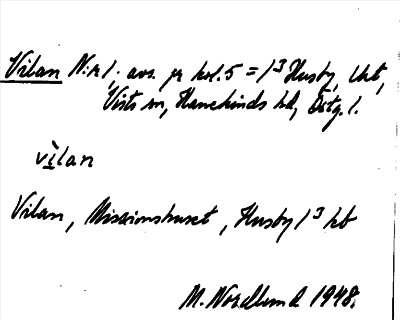 Vilan N:r 1, avs. fr kol. 5 = 1³ Husby, Ukt,
Vists sn, Hanekinds hd, Östg. l.
vìlan
Vilan, Missionshuset, Husby 1³ kb
M. Nordlund 1948.